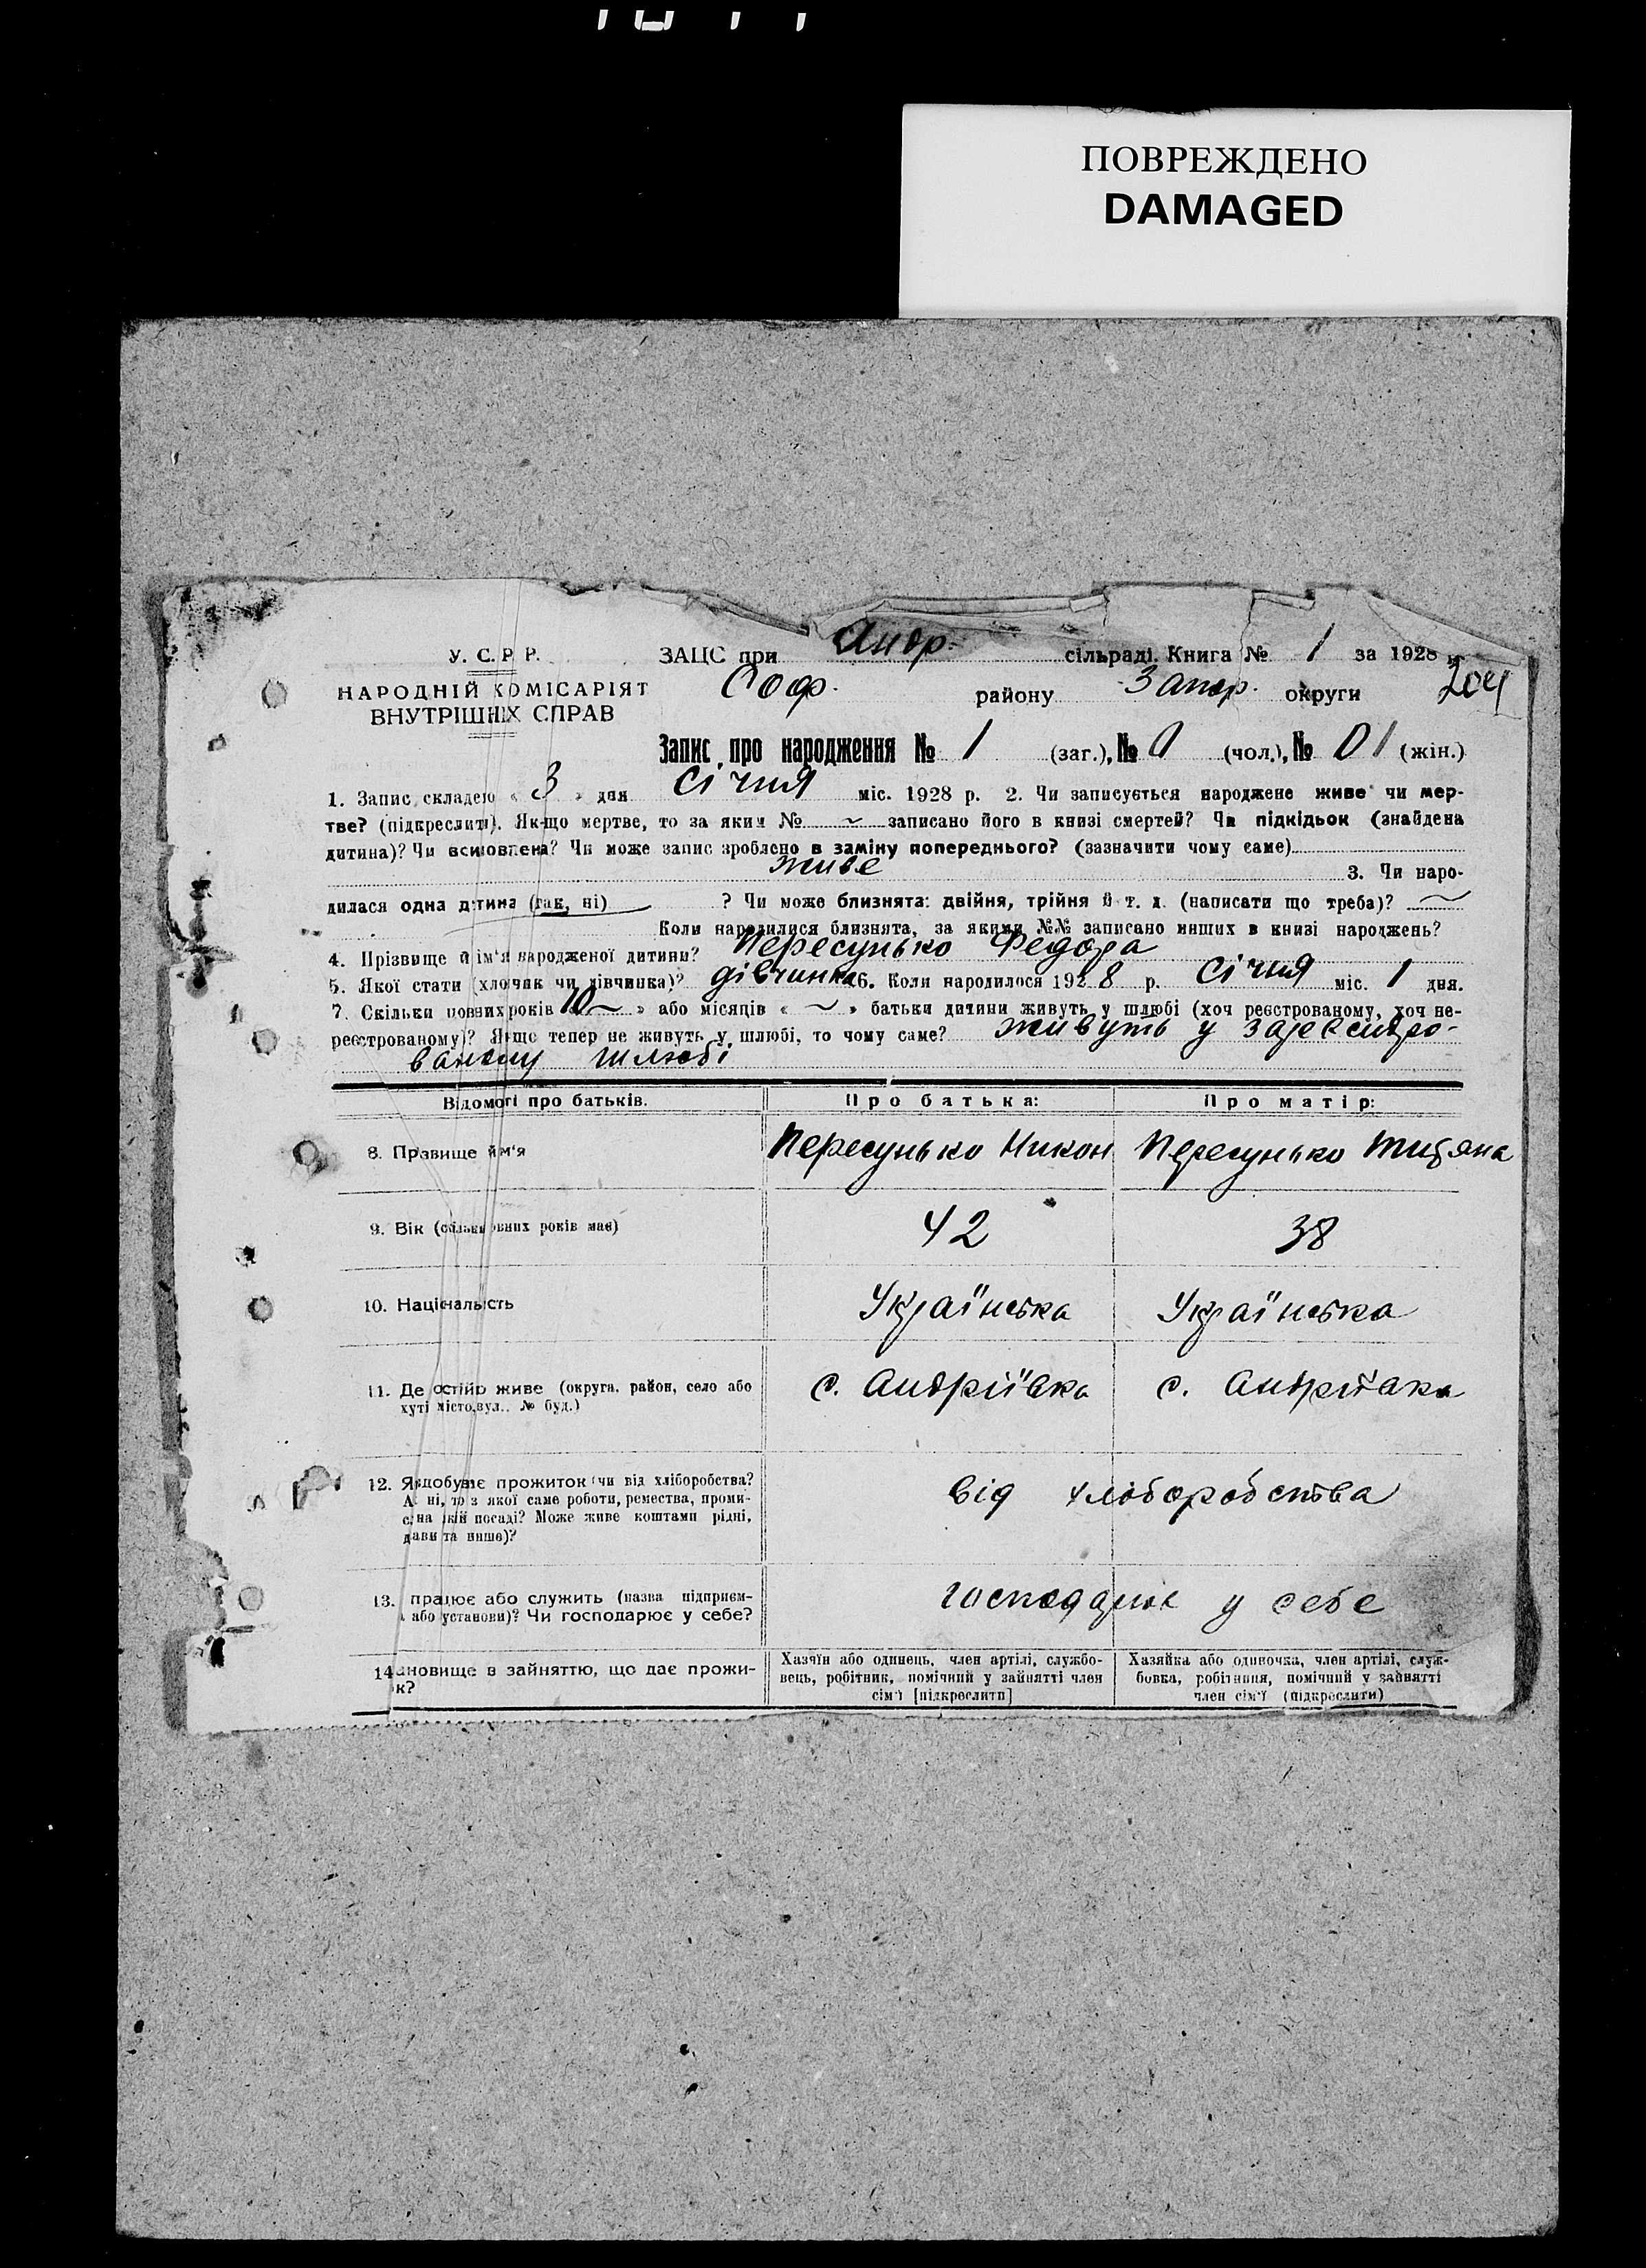 ПОВРЕЖДЕНО
DAMAGED
У. С. Р Р.
НАРОДНІЙ КОМІСАРІЯТ
ВНУТРІШНІХ СПРАВ
ЗАЦС при Андр. сільраді. Книга № 1 за 1928 р.
Соф. району Запор. округи 204
Запис про народження № 1 (заг.), № 0 (чол.), № 01 (жін.)
1. Запис складено « 3 » дня січня міс. 1928 р. 2. Чи записується народжене живе чи мер-
тве? (підкреслити). Як-що мертве, то за яким № ~ записано його в книзі смертей? Чи підкідьок (знайдена
дитина)? Чи всиновлена? Чи може запис зроблено в заміну попереднього? (зазначити чому саме)
живе 3. Чи наро-
дилася одна дитина (так, ні) ? Чи може близнята: двійня, трійня й т. д. (написати що треба)? ~
Коли народилися близнята, за якими №№ записано инших в книзі народжень?
4. Прізвище й ім'я народженої дитини? Пересунько Федора
5. Якої стати (хлопчик чи дівчинка)? дівчинка 6. Коли народилося 1928 р. січня міс. 1 дня.
7. Скільки повних років « 10 ~ » або місяців « ~ » батьки дитини живуть у шлюбі (хоч реєстрованому, хоч не-
реєстрованому)? Якщо тепер не живуть у шлюбі, то чому саме? живуть у зареєстро-
ваному шлюбі
Відомості про батьків. Про батька: Про матір:
8. Прізвище й ім'я Пересунько Никон Пересунько Титяна
9. Вік (скільки повних років має) 42 38
10. Національність Українська Українська
11. Де постійно живе (округа, район, село або с. Андріївка с. Андріївка
хутір, місто, вул., № буд.)
12. Як здобуває прожиток (чи від хліборобства? від хліборобства
А як ні, то з якої саме роботи, ремества, проми-
на якій посаді? Може живе коштами рідні,
держави та инше)?
13. працює або служить (назва підприєм- господарює у себе
або установи)? Чи господарює у себе?
14 ановище в зайняттю, що дає прожи- Хазяїн або одинець, член артілі, службо- Хазяйка або одиночка, член артілі, служ-
к? вець, робітник, помічний у зайнятті член бовка, робітниця, помічний у зайнятті
сім'ї [підкреслити] член сім'ї (підкреслити)